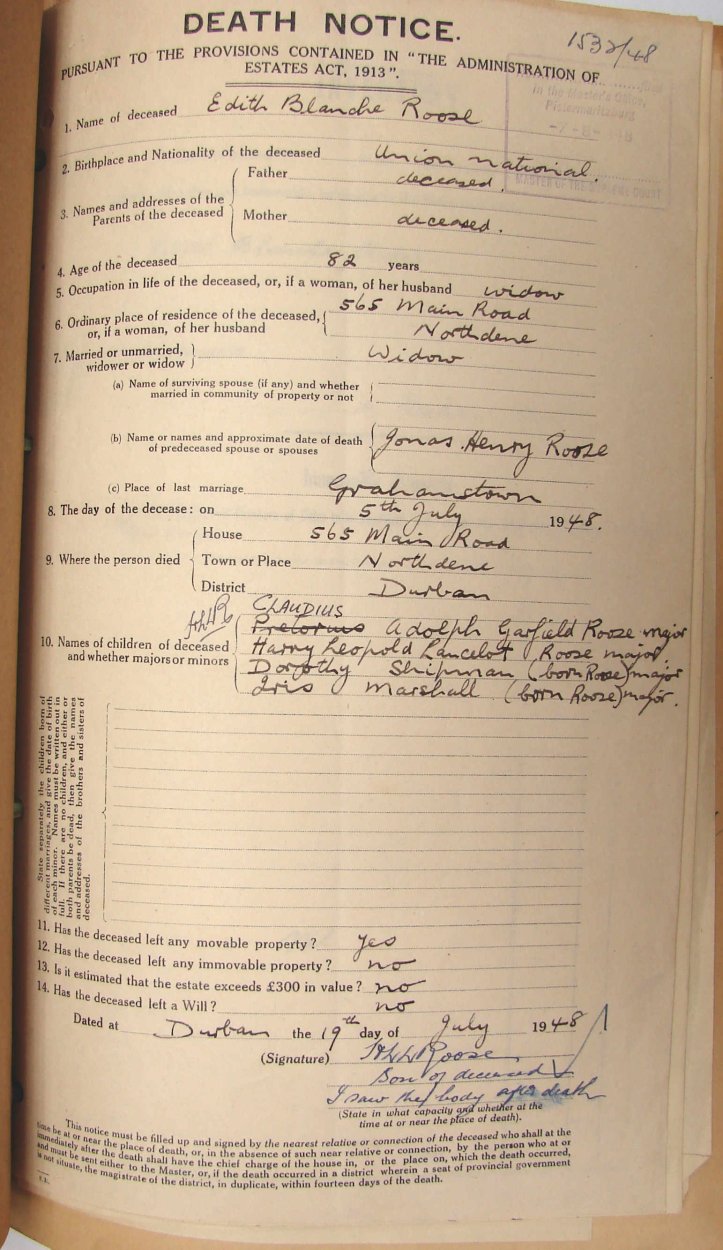 DEATH NOTICE.
1532/48
PURSUANT TO THE PROVISIONS CONTAINED IN "THE ADMINISTRATION OF
ESTATES ACT, 1913".
in the Master's Office,
Pietermaritzburg
MASTER OF THE SUPREME COURT
1. Name of deceased Edith Blanche Roose
2. Birthplace and Nationality of the deceased Union national.
3. Names and addresses of the Parents of the deceased
Father deceased.
Mother deceased.
4. Age of the deceased 82 years
5. Occupation in life of the deceased, or, if a woman, of her husband widow
6. Ordinary place of residence of the deceased, or, if a woman, of her husband
565 Main Road
Northdene
7. Married or unmarried, widower or widow
Widow
(a) Name of surviving spouse (if any) and whether
married in community of property or not
(b) Name or names and approximate date of death
of predeceased spouse or spouses
Jonas Henry Roose
(c) Place of last marriage Grahamstown
8. The day of the decease: on 5th July 1948.
9. Where the person died
House 565 Main Road
Town or Place Northdene
District Durban
10. Names of children of deceased
and whether majors or minors
CLAUDIUS
Pretorius Adolph Garfield Roose major
Harry Leopold Lancelot Roose major.
Dorothy Shipman (born Roose) major
Iris Marshall (born Roose) major.
State separately the children born of
different marriages, and give the date of birth
of each minor. Names must be written out in
full. If there are no children, and either or
both parents be dead, then give the names
and addresses of the brothers and sisters of
deceased.
11. Has the deceased left any movable property? Yes
12. Has the deceased left any immovable property? no
13. Is it estimated that the estate exceeds £300 in value? no
14. Has the deceased left a Will? no
Dated at Durban the 19th day of July 1948
(Signature) HLL Roose
Son of deceased
I saw the body after death
(State in what capacity and whether at the
time at or near the place of death).
This notice must be filled up and signed by the nearest relative or connection of the deceased who shall at the
time be at or near the place of death, or, in the absence of such near relative or connection, by the person who at or
immediately after the death shall have the chief charge of the house in, or the place on, which the death occurred,
and must be sent either to the Master, or, if the death occurred in a district wherein a seat of provincial government
is not situate, the magistrate of the district, in duplicate, within fourteen days of the death.